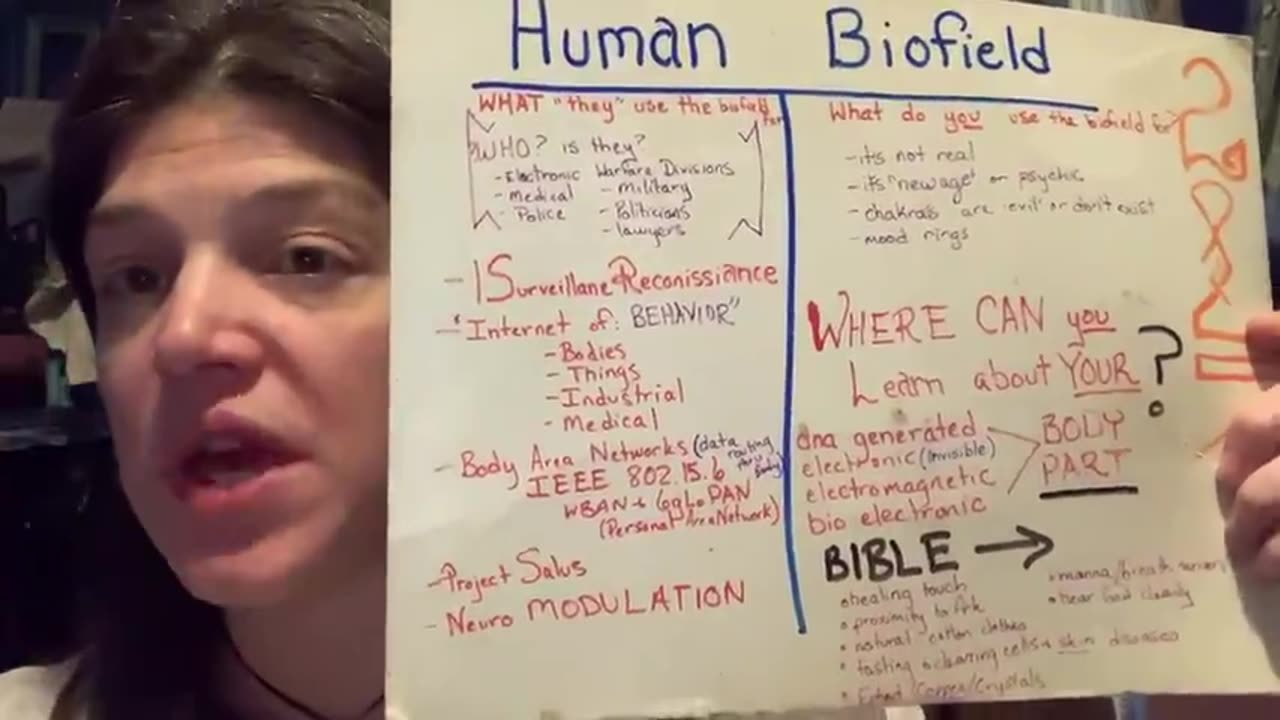 Human Biofield
WHAT "they" use the biofield for
WHO? is they?
- Electronic Warfare Divisions
- Medical - Military
- Police - Politicians
- lawyers
- ISurveillane Reconissiance
- "Internet of: BEHAVIOR"
- Bodies
- Things
- Industrial
- Medical
- Body Area Networks (data routing
IEEE 802.15.6 body)
WBAN + 6gLoPAN
(Personal Area Network)
- Project Salus
- Neuro MODULATION
What do you use the biofield for?
- it's not real
- it's "new age" or psychic
- chakras are 'evil' or don't exist
- mood rings
WHERE CAN you
Learn about YOUR ?
dna generated
electronic (invisible)
electromagnetic
bio electronic
BODY
PART
BIBLE →
• healing touch
• proximity to Ark
• natural cotton clothes
• fasting & cleaning cells + skin diseases
• Copper/Crystals
• manna/breath
• hear God clearly